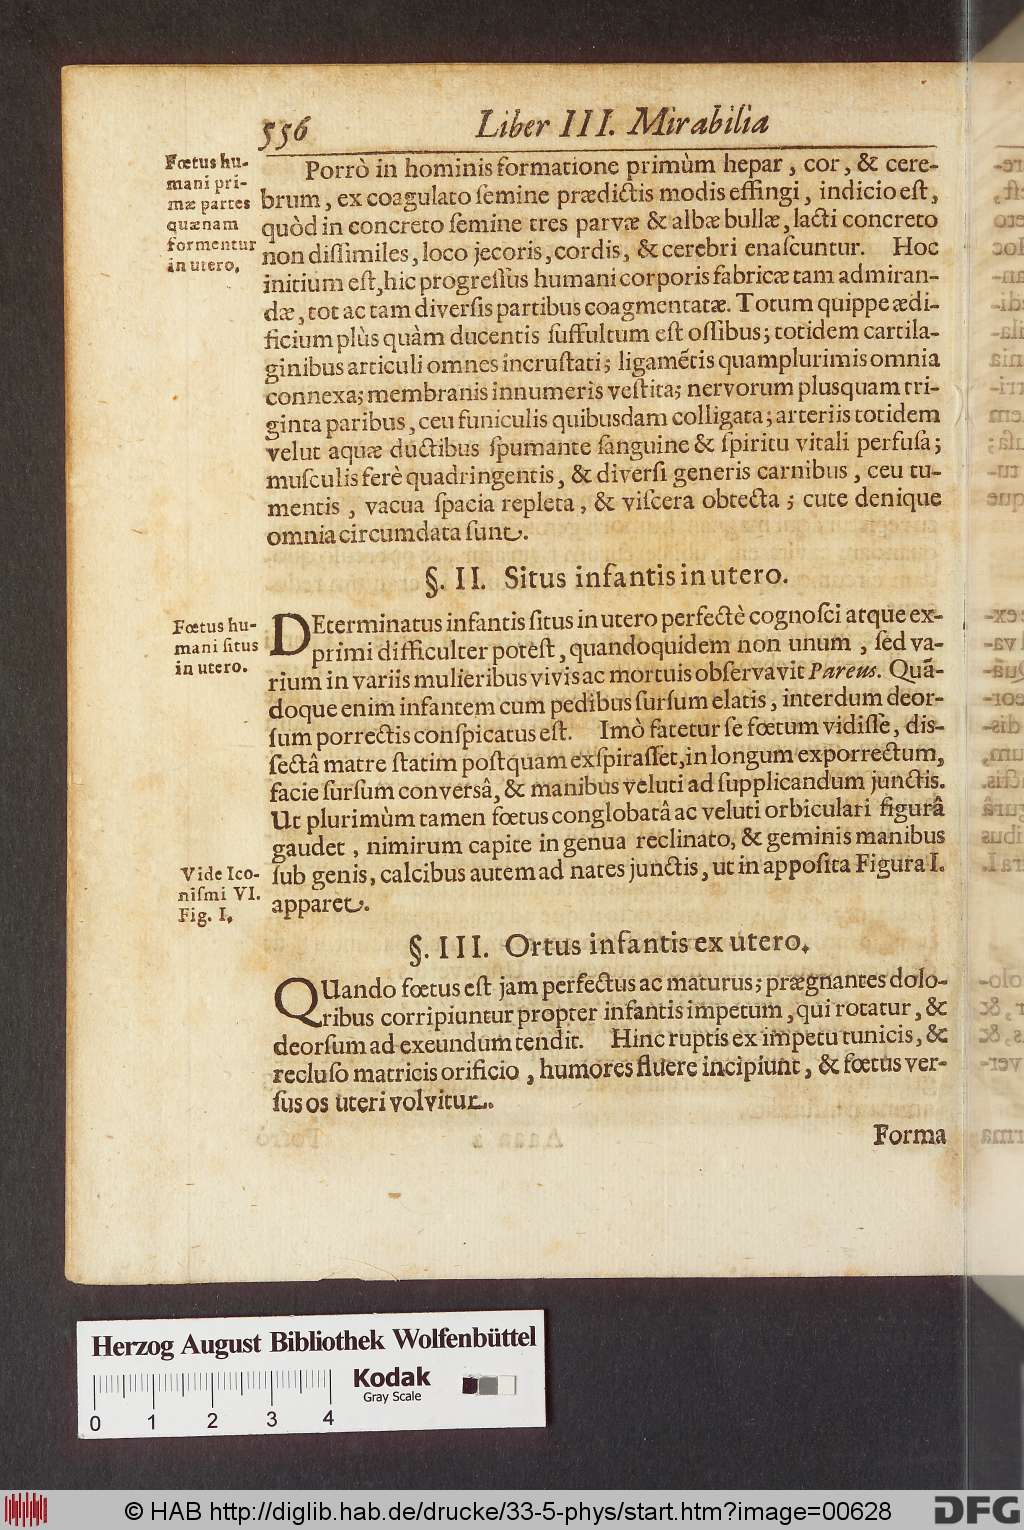 556 Liber III. Mirabilia
Fœtus hu-
mani pri-
mæ partes
quænam
formentur
in utero.
Porrò in hominis formatione primùm hepar, cor, & cere-
brum, ex coagulato ſemine prædictis modis effingi, indicio eſt,
quòd in concreto ſemine tres parvæ & albæ bullæ, lacti concreto
non diſſimiles, loco jecoris, cordis, & cerebri enaſcuntur. Hoc
initium eſt, hic progreſſus humani corporis fabricæ tam admiran-
dæ, tot ac tam diverſis partibus coagmentatæ. Totum quippe ædi-
ficium plùs quàm ducentis ſuffultum eſt oſſibus; totidem cartila-
ginibus articuli omnes incruſtati; ligamẽtis quamplurimis omnia
connexa; membranis innumeris veſtita; nervorum plusquam tri-
ginta paribus, ceu funiculis quibusdam colligata; arteriis totidem
velut aquæ ductibus ſpumante ſanguine & ſpiritu vitali perfuſa;
muſculis ferè quadringentis, & diverſi generis carnibus, ceu tu-
mentis, vacua ſpacia repleta, & viſcera obtecta; cute denique
omnia circumdata ſunt.
§. II. Situs infantis in utero.
Fœtus hu-
mani ſitus
in utero.
DEterminatus infantis ſitus in utero perfectè cognoſci atque ex-
primi difficulter poteſt, quandoquidem non unum, ſed va-
rium in variis mulieribus vivis ac mortuis obſervavit Pareus. Quã-
doque enim infantem cum pedibus ſurſum elatis, interdum deor-
ſum porrectis conſpicatus eſt. Imò fatetur ſe fœtum vidiſſe, dis-
ſectâ matre ſtatim poſtquam exſpiraſſet, in longum exporrectum,
facie ſurſum converſâ, & manibus veluti ad ſupplicandum junctis.
Ut plurimùm tamen fœtus conglobatâ ac veluti orbiculari figurâ
gaudet, nimirum capite in genua reclinato, & geminis manibus
ſub genis, calcibus autem ad nates junctis, ut in appoſita Figura I.
apparet.
Vide Ico-
niſmi VI.
Fig. I.
§. III. Ortus infantis ex utero.
QUando fœtus eſt jam perfectus ac maturus; prægnantes dolo-
ribus corripiuntur propter infantis impetum, qui rotatur, &
deorſum ad exeundum tendit. Hinc ruptis ex impetu tunicis, &
recluſo matricis orificio, humores fluere incipiunt, & fœtus ver-
ſus os uteri volvitur.
Forma
Herzog August Bibliothek Wolfenbüttel
Kodak
Gray Scale
0 1 2 3 4
© HAB http://diglib.hab.de/drucke/33-5-phys/start.htm?image=00628
DFG